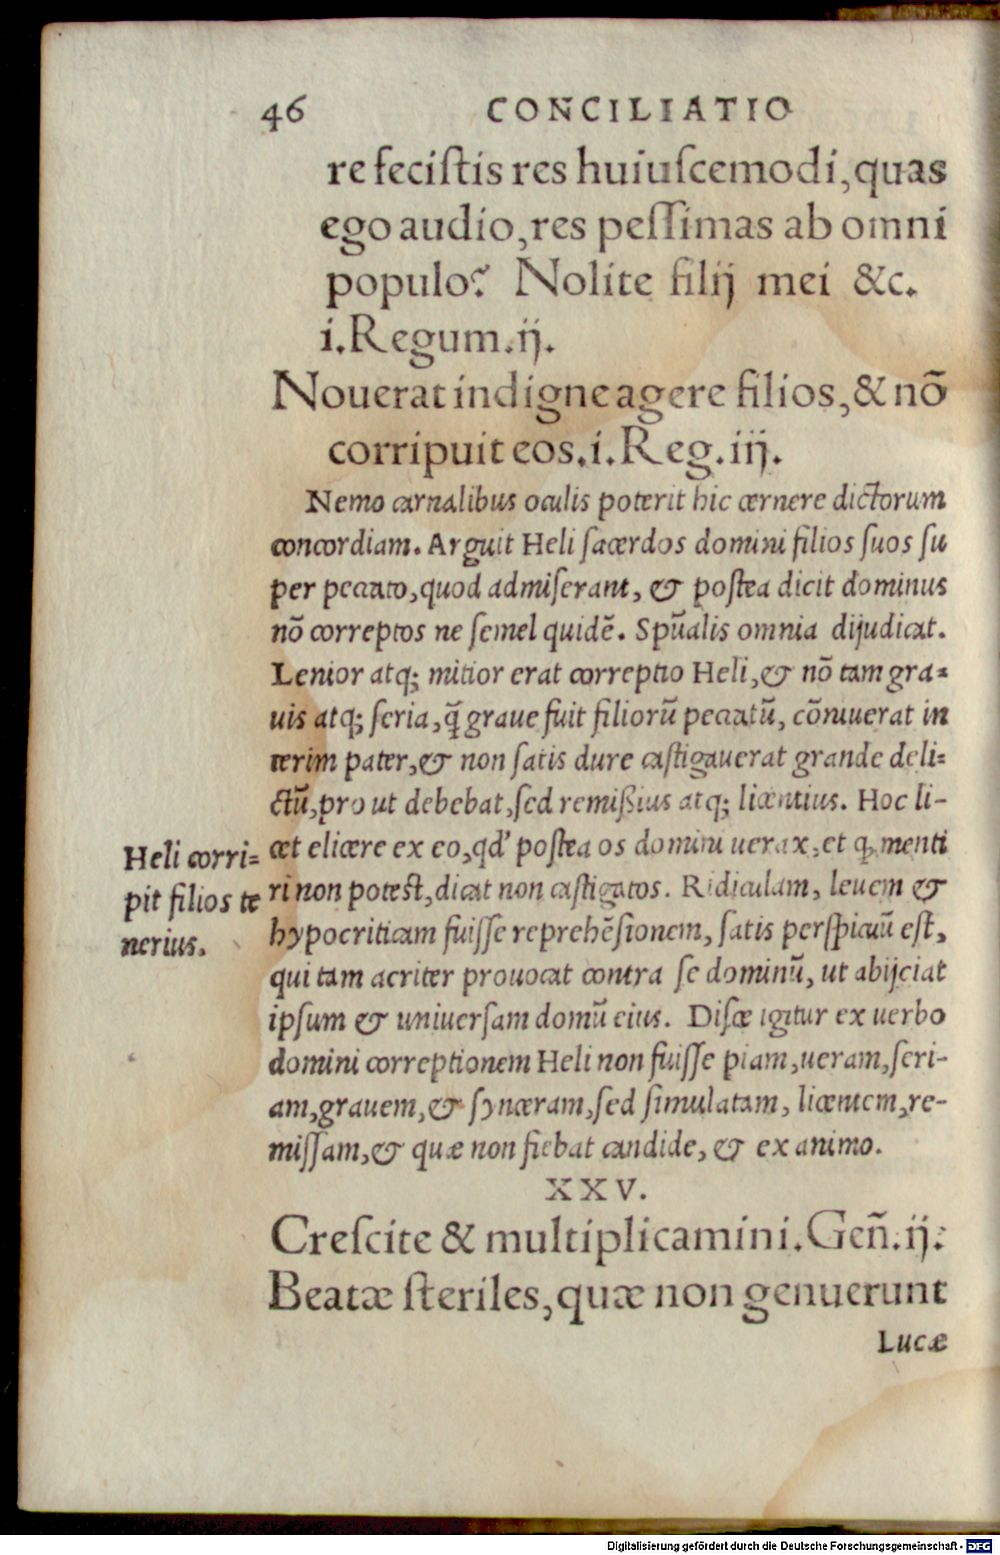 46 CONCILIATIO
re feciſtis res huiuſcemodi, quas
ego audio, res peſſimas ab omni
populo? Nolite filij mei &c.
i. Regum. ij.
Nouerat indigne agere filios, & nō
corripuit eos. i. Reg. iij.
Nemo carnalibus oculis poterit hic cernere dictorum
concordiam. Arguit Heli ſacerdos domini filios ſuos ſu
per peccato, quod admiſerant, & poſtea dicit dominus
nō correptos ne ſemel quidē. Spūalis omnia dijudicat.
Lenior atq; mitior erat correptio Heli, & nō tam gra-
uis atq; ſeria, q̄ graue fuit filiorū peccatū, cōniuerat in
terim pater, & non ſatis dure caſtigauerat grande deli-
ctū, pro ut debebat, ſed remißius atq; licentius. Hoc li-
cet elicere ex eo, qd' poſtea os domini uerax, et q, menti
ri non poteſt, dicat non caſtigatos. Ridiculam, leuem &
hypocriticam fuiſſe reprehēſionem, ſatis perſpicuū eſt,
qui tam acriter prouocat contra ſe dominū, ut abijciat
ipſum & uniuerſam domū eius. Diſce igitur ex uerbo
domini correptionem Heli non fuiſſe piam, ueram, ſeri-
am, grauem, & ſynceram, ſed ſimulatam, licentem, re-
miſſam, & quæ non fiebat candide, & ex animo.
Heli corri-
pit filios te
nerius.
XXV.
Creſcite & multiplicamini. Geñ. ij.
Beatæ ſteriles, quæ non genuerunt
Lucæ
Digitalisierung gefördert durch die Deutsche Forschungsgemeinschaft - DFG